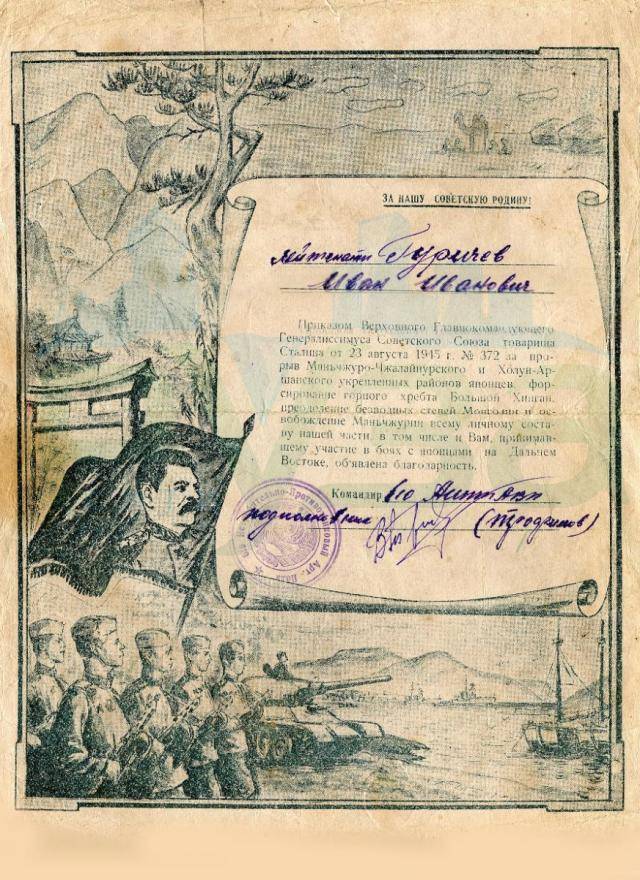 ЗА НАШУ СОВЕТСКУЮ РОДИНУ!
лейтенант Гуричев
Иван Иванович
Приказом Верховного Главнокомандующего
Генералиссимуса Советского Союза товарища
Сталина от 23 августа 1945 г. № 372 за про-
рыв Маньчжуро-Чжалайнурского и Холун-Ар-
шанского укрепленных районов японцев, фор-
сирование горного хребта Большой Хинган,
преодоление безводных степей Монголии и ос-
вобождение Маньчжурии всему личному соста-
ву нашей части, в том числе и Вам, принимав-
шему участие в боях с японцами на Дальнем
Востоке, об'явлена благодарность.
Командир
подполковник
Противотанковый Арт. Полк